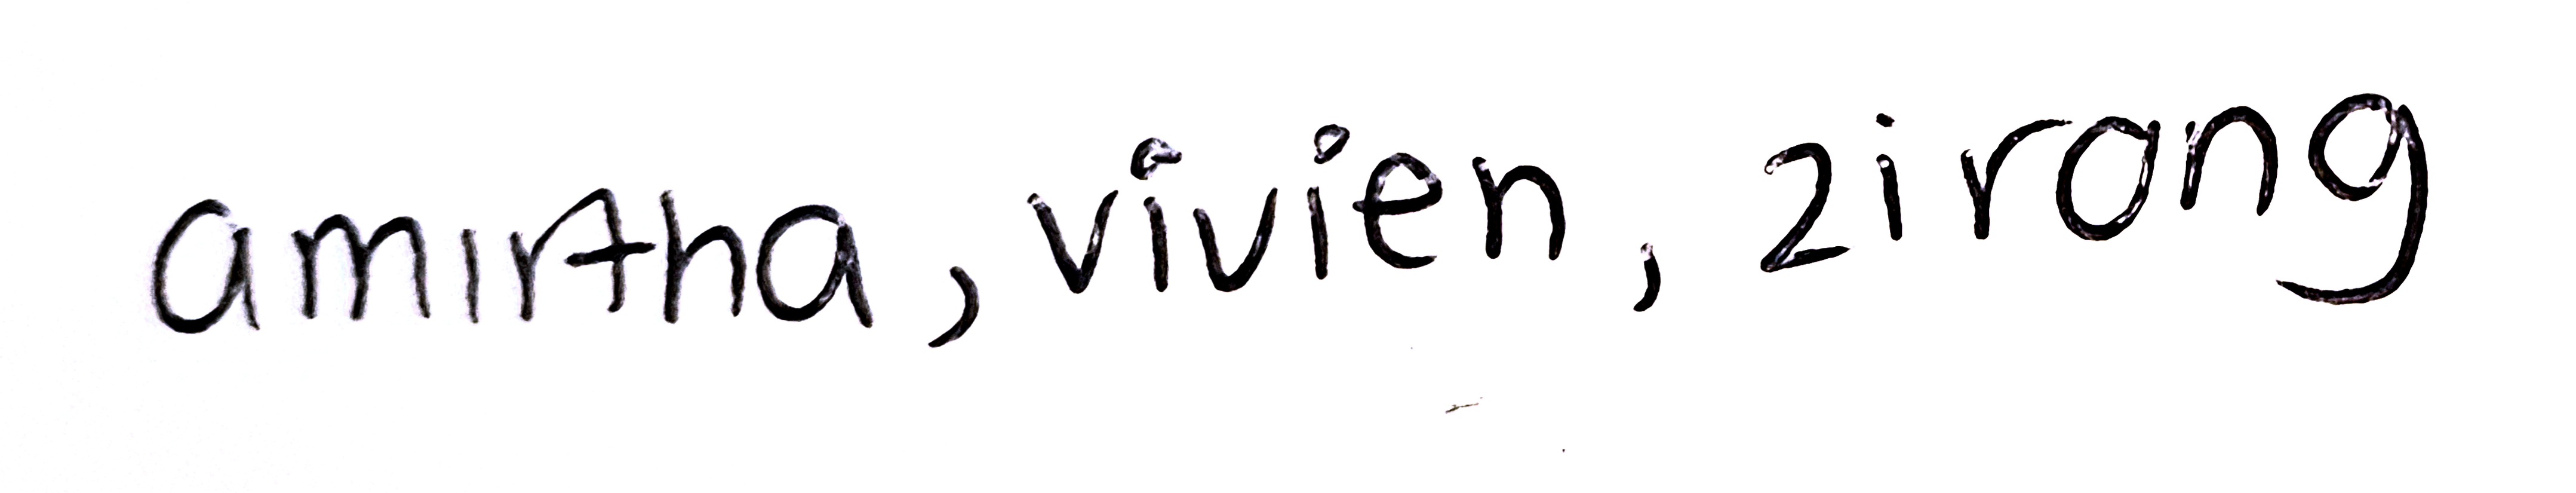 amirtha, vivien, zirong